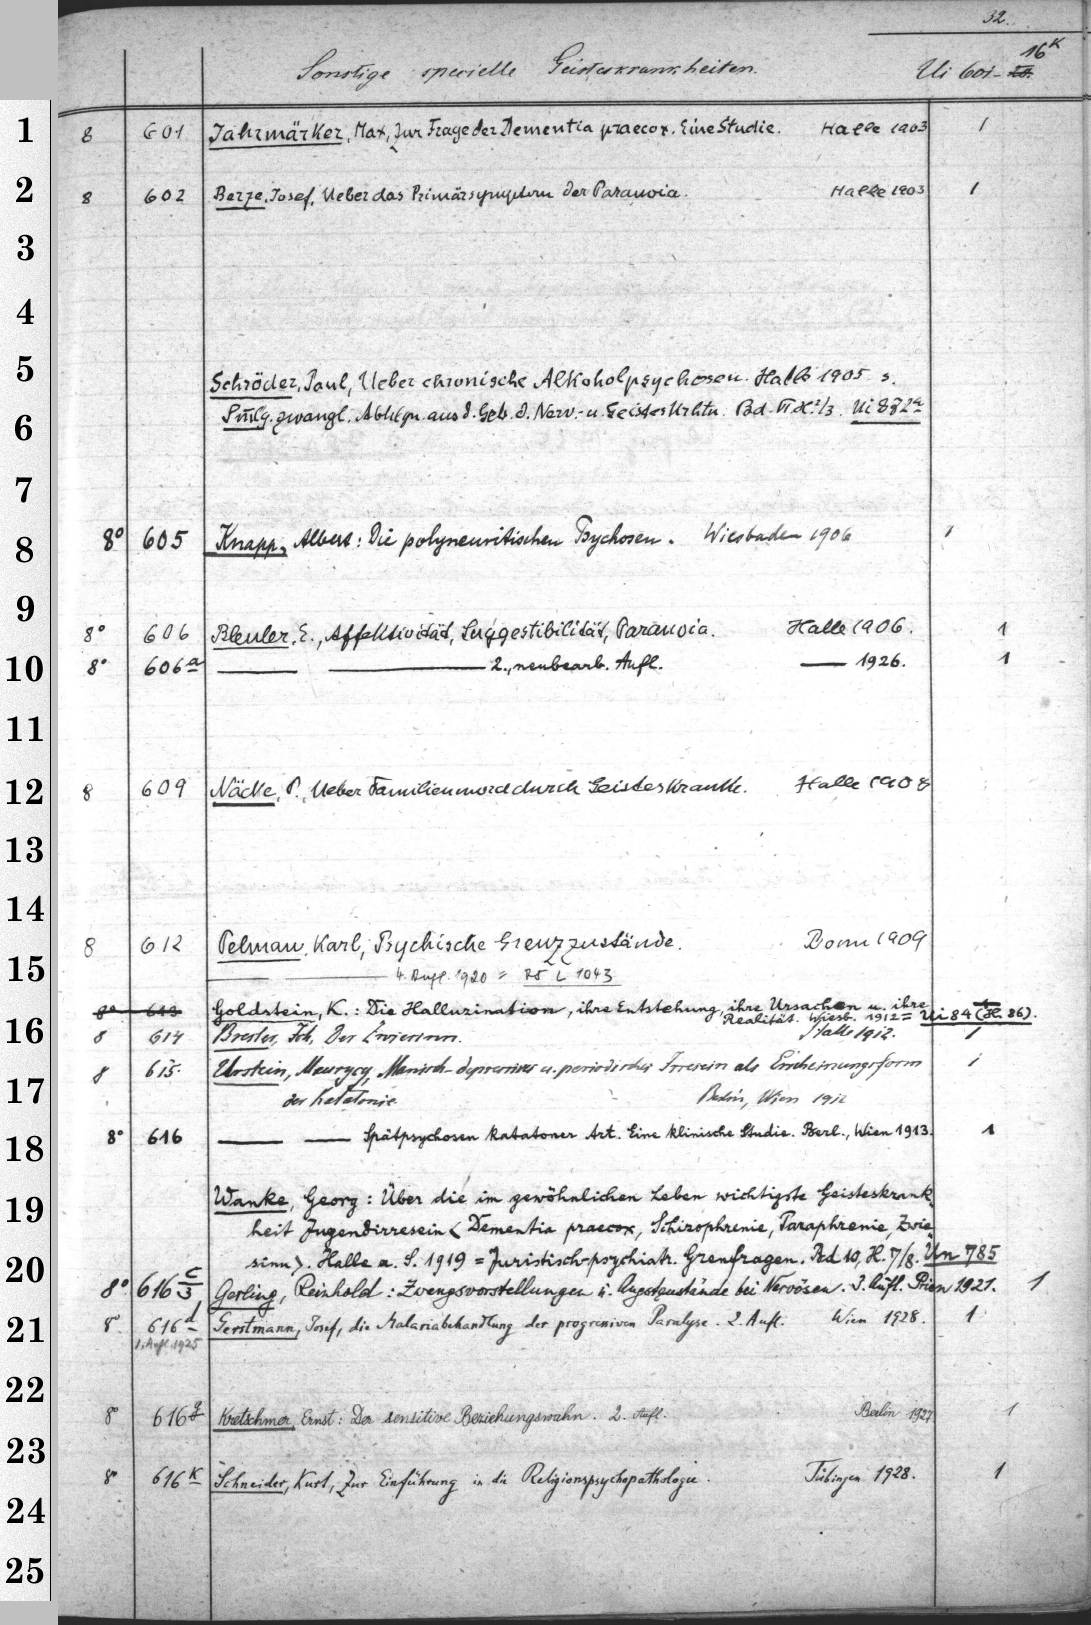 32.
Sonstige specielle Geisteskrankheiten. Ui 601- 16K
1 8 601 Jahrmärker, Max, Zur Frage der Dementia praecox. Eine Studie. Halle 1903 1
2 8 602 Berze, Josef, Ueber das Primärsymptom der Paranoia. Halle 1903 1
3
4
5 Schröder, Paul, Ueber chronische Alkoholpsychosen. Halle 1905 s.
6 Smlg. zwangl. Abhdgn. aus d. Geb. d. Nerv.- u. Geisteskrhtn. Bd. VI H. 2/3. Ui 882a
7
8 8° 605 Knapp, Albert: Die polyneuritischen Psychosen. Wiesbaden 1906 1
9 8° 606 Bleuler, E., Affektivität, Suggestibilität, Paranoia. Halle 1906. 1
10 8° 606a — — 2., neubearb. Aufl. — 1926. 1
11
12 8 609 Näcke, P., Ueber Familienmord durch Geisteskranke. Halle 1908
13
14
8 612 Pelman, Karl, Psychische Grenzzustände. Bonn 1909
15 — — 4. Aufl. 1920 = L 1043
8° 613 Goldstein, K.: Die Halluzination, ihre Entstehung, ihre Ursachen u. ihre 1
Realität. Wiesb. 1912 = Ui 84 (H. 86).
16 8 614 Bresler, Joh, Der Halle 1912. 1
8 615. Urstein, Maurycy, Manisch-depressives u. periodisches Irresein als Erscheinungsform 1
17 der Katatonie Berlin, Wien 1912
18 8° 616 — — Spätpsychosen katatoner Art. Eine klinische Studie. Berl., Wien 1913. 1
19 Wanke, Georg: Über die im gewöhnlichen Leben wichtigste Geisteskrank
heit Jugendirresein < Dementia praecox, Schizophrenie, Paraphrenie, Zwie
20 sinn >. Halle a. S. 1919 = Juristisch-psychiatr. Grenzfragen. Bd 10, H. 7/8. Un 785
8° 616 c/3 Gerling, Reinhold: Zwangsvorstellungen u. Angstzustände bei Nervösen. 3. Aufl. Prien 1921. 1
21 8° 616d Gerstmann, Josef, die Malariabehandlung der progressiven Paralyse. 2. Aufl. Wien 1928. 1
1. Aufl. 1925
22
8° 616g Kretschmer, Ernst: Der sensitive Beziehungswahn. 2. Aufl. Berlin 1927 1
23
8° 616K Schneider, Kurt, Zur Einführung in die Religionspsychopathologie. Tübingen 1928. 1
24
25